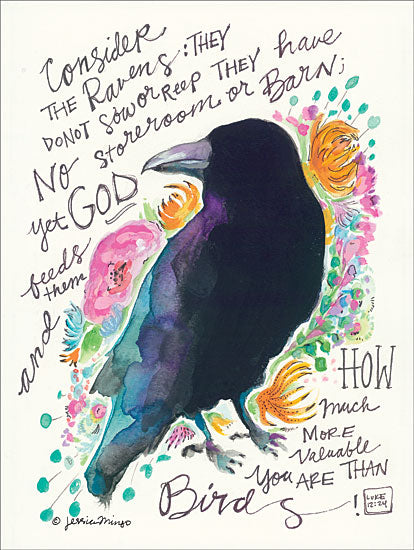 Consider
THE Ravens: THEY
DO NOT SOW or REEP THEY have
NO storeroom or BARN;
yet GOD
feeds
them
and
HOW
much
MORE
valuable
you ARE THAN
Birds!
LUKE
12:24
© Jessica Mingo